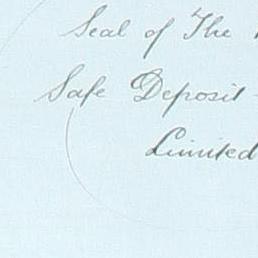 Seal of The
Safe Deposit
Limited